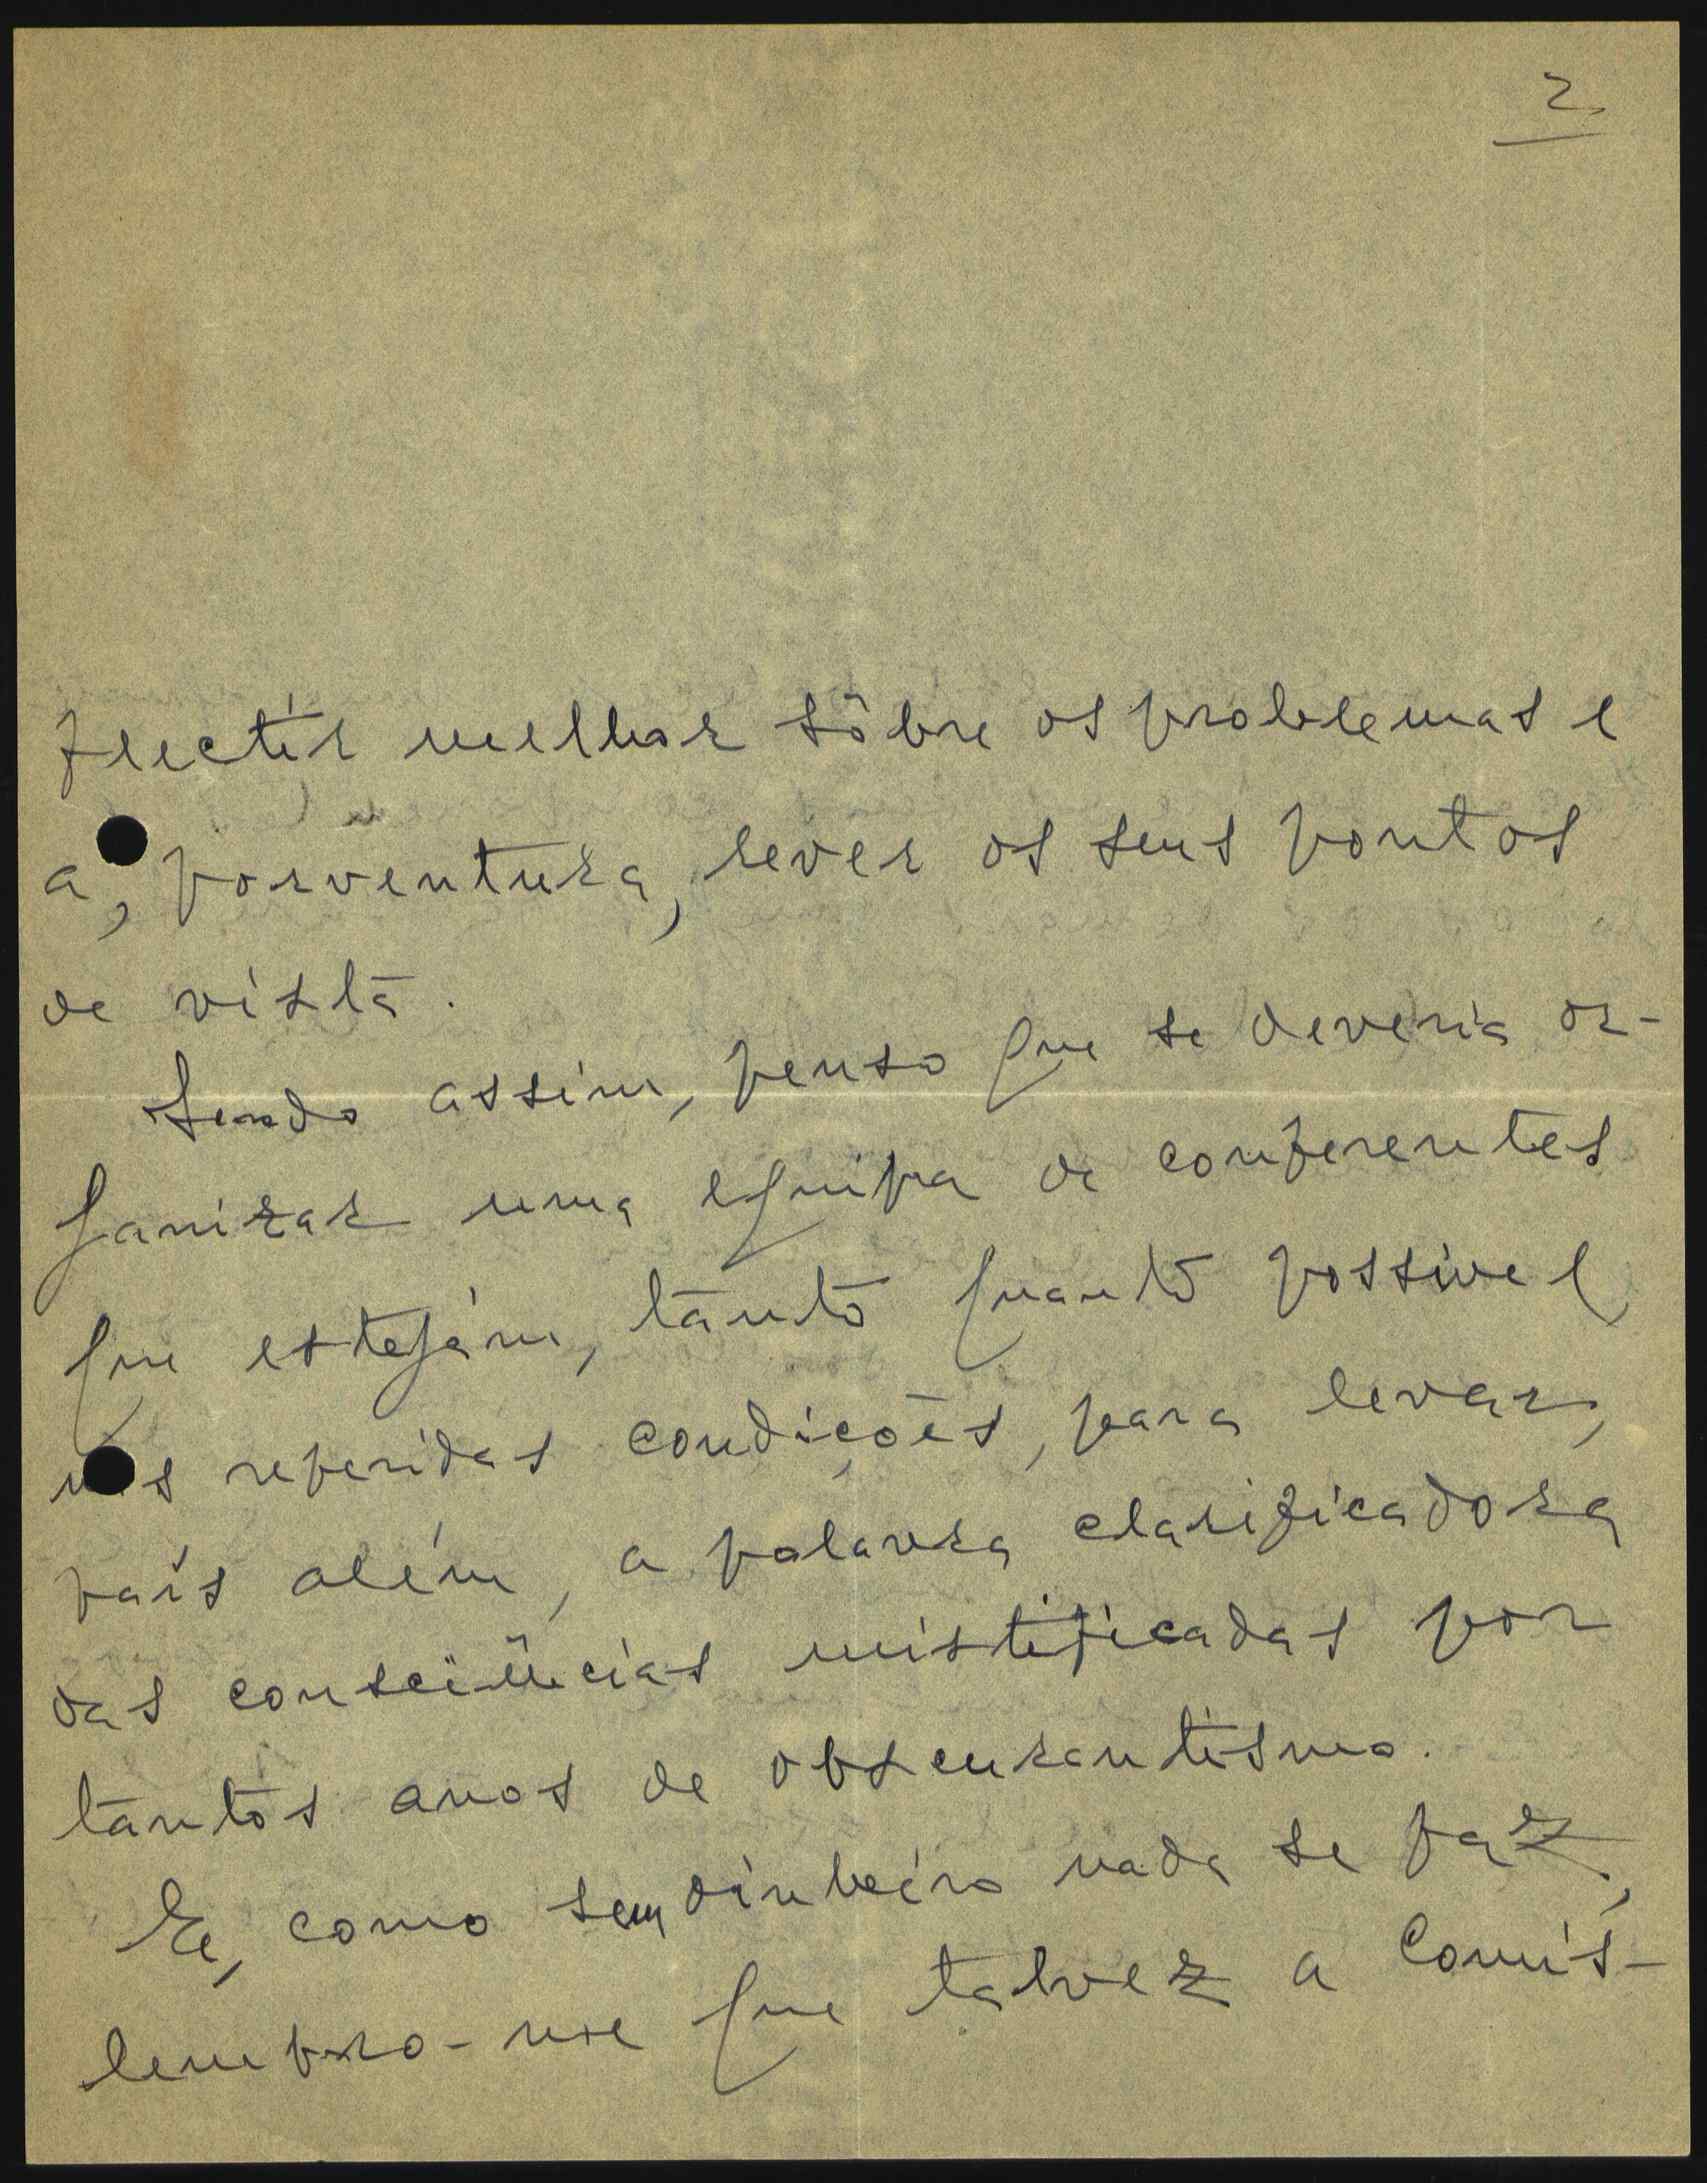 2
flectir melhor sôbre os problemas e
a, porventura, rever os seus pontos
de vista.
Sendo assim, penso que se deveria or-
ganizar uma equipa de conferentes
que estejam, tanto quanto possivel,
nas referidas condições, para levar,
país além, a palavra clarificadora
das consciências mistificadas por
tantos anos de obscurantismo.
E, como sem dinheiro nada se faz,
lembro-me que talvez a Comis-